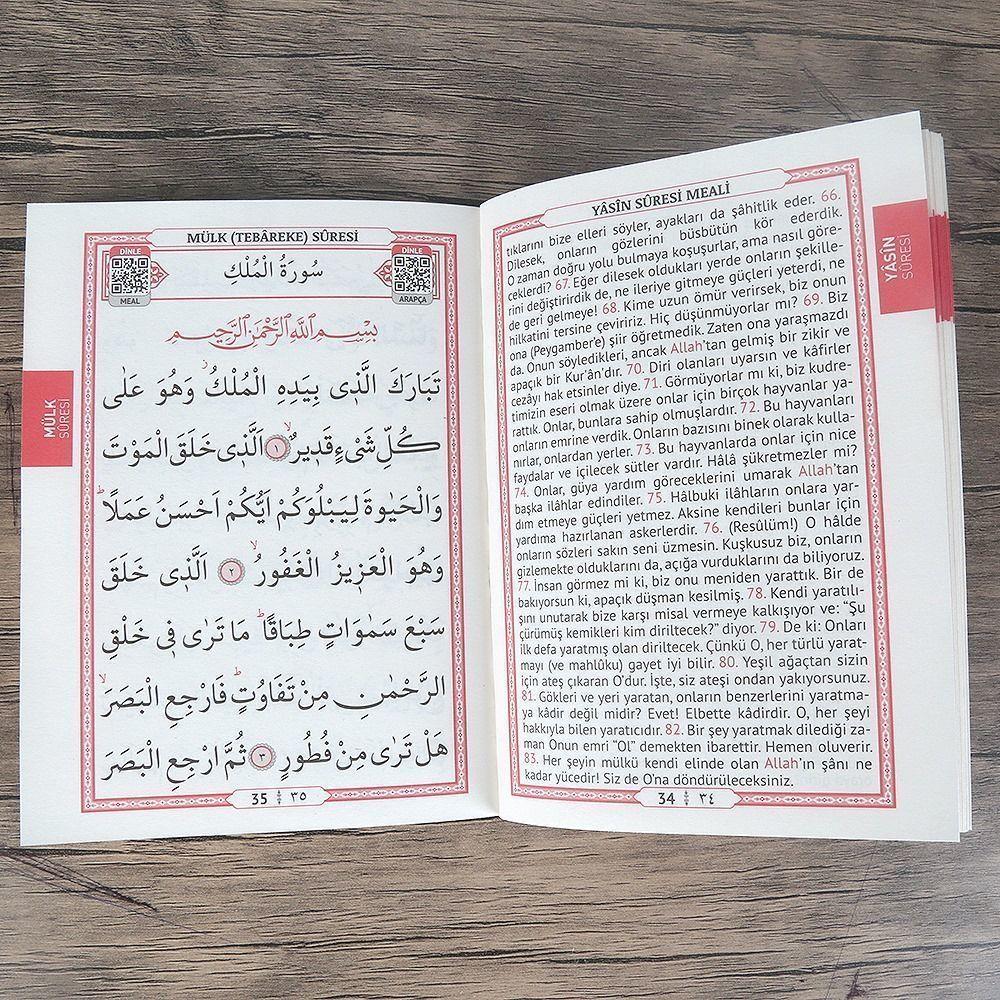 MÜLK (TEBÂREKE) SÛRESİ
DİNLE
MEAL
سُورَةُ الْمُلْكِ
DİNLE
ARAPÇA
بِسْمِ اللّٰهِ الرَّحْمٰنِ الرَّحِيمِ
تَبَارَكَ الَّذ۪ي بِيَدِهِ الْمُلْكُۘ وَهُوَ عَلٰى
كُلِّ شَيْءٍ قَد۪يرٌۙ ﴿١﴾ اَلَّذ۪ي خَلَقَ الْمَوْتَ
وَالْحَيٰوةَ لِيَبْلُوَكُمْ اَيُّكُمْ اَحْسَنُ عَمَلًاۜ
وَهُوَ الْعَز۪يزُ الْغَفُورُۙ ﴿٢﴾ اَلَّذ۪ي خَلَقَ
سَبْعَ سَمٰوَاتٍ طِبَاقًاۜ مَا تَرٰى ف۪ي خَلْقِ
الرَّحْمٰنِ مِنْ تَفَاوُتٍۜ فَارْجِعِ الْبَصَرَۙ
هَلْ تَرٰى مِنْ فُطُورٍ ﴿٣﴾ ثُمَّ ارْجِعِ الْبَصَرَ
35 ٣٥
MÜLK
SÛRESİ
YÂSÎN SÛRESİ MEALİ
tıklarını bize elleri söyler, ayakları da şâhitlik eder. 66.
Dilesek, onların gözlerini büsbütün kör ederdik.
O zaman doğru yolu bulmaya koşuşurlar, ama nasıl göre-
ceklerdi? 67. Eğer dilesek oldukları yerde onların şekille-
rini değiştirirdik de, ne ileriye gitmeye güçleri yeterdi, ne
de geri gelmeye! 68. Kime uzun ömür verirsek, biz onun
hilkatini tersine çeviririz. Hiç düşünmüyorlar mı? 69. Biz
ona (Peygamber'e) şiir öğretmedik. Zaten ona yaraşmazdı
da. Onun söyledikleri, ancak Allah'tan gelmiş bir zikir ve
apaçık bir Kur'ân'dır. 70. Diri olanları uyarsın ve kâfirler
cezâyı hak etsinler diye. 71. Görmüyorlar mı ki, biz kudre-
timizin eseri olmak üzere onlar için birçok hayvanlar ya-
rattık. Onlar, bunlara sahip olmuşlardır. 72. Bu hayvanları
onların emrine verdik. Onların bazısını binek olarak kulla-
nırlar, onlardan yerler. 73. Bu hayvanlarda onlar için nice
faydalar ve içilecek sütler vardır. Hâlâ şükretmezler mi?
74. Onlar, güya yardım göreceklerini umarak Allah'tan
başka ilâhlar edindiler. 75. Hâlbuki ilâhların onlara yar-
dım etmeye güçleri yetmez. Aksine kendileri bunlar için
yardıma hazırlanan askerlerdir. 76. (Resûlüm!) O hâlde
onların sözleri sakın seni üzmesin. Kuşkusuz biz, onların
gizlemekte olduklarını da, açığa vurduklarını da biliyoruz.
77. İnsan görmez mi ki, biz onu meniden yarattık. Bir de
bakıyorsun ki, apaçık düşman kesilmiş. 78. Kendi yaratılı-
şını unutarak bize karşı misal vermeye kalkışıyor ve: "Şu
çürümüş kemikleri kim diriltecek?" diyor. 79. De ki: Onları
ilk defa yaratmış olan diriltecek. Çünkü O, her türlü yarat-
mayı (ve mahlûku) gayet iyi bilir. 80. Yeşil ağaçtan sizin
için ateş çıkaran O'dur. İşte, siz ateşi ondan yakıyorsunuz.
81. Gökleri ve yeri yaratan, onların benzerlerini yaratma-
ya kâdir değil midir? Evet! Elbette kâdirdir. O, her şeyi
hakkıyla bilen yaratıcıdır. 82. Bir şey yaratmak dilediği za-
man Onun emri "Ol" demekten ibarettir. Hemen oluverir.
83. Her şeyin mülkü kendi elinde olan Allah'ın şânı ne
kadar yücedir! Siz de O'na döndürüleceksiniz.
34 ٣٤
YÂSÎN
SÛRESİ